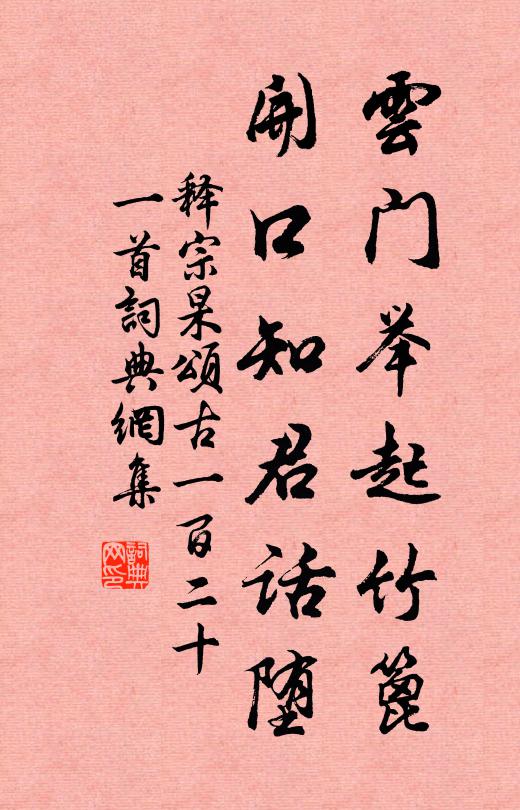 雲门举起竹篦
開口知君话堕
释宗杲頌古一百二十
一首詞典網集
詞典网印